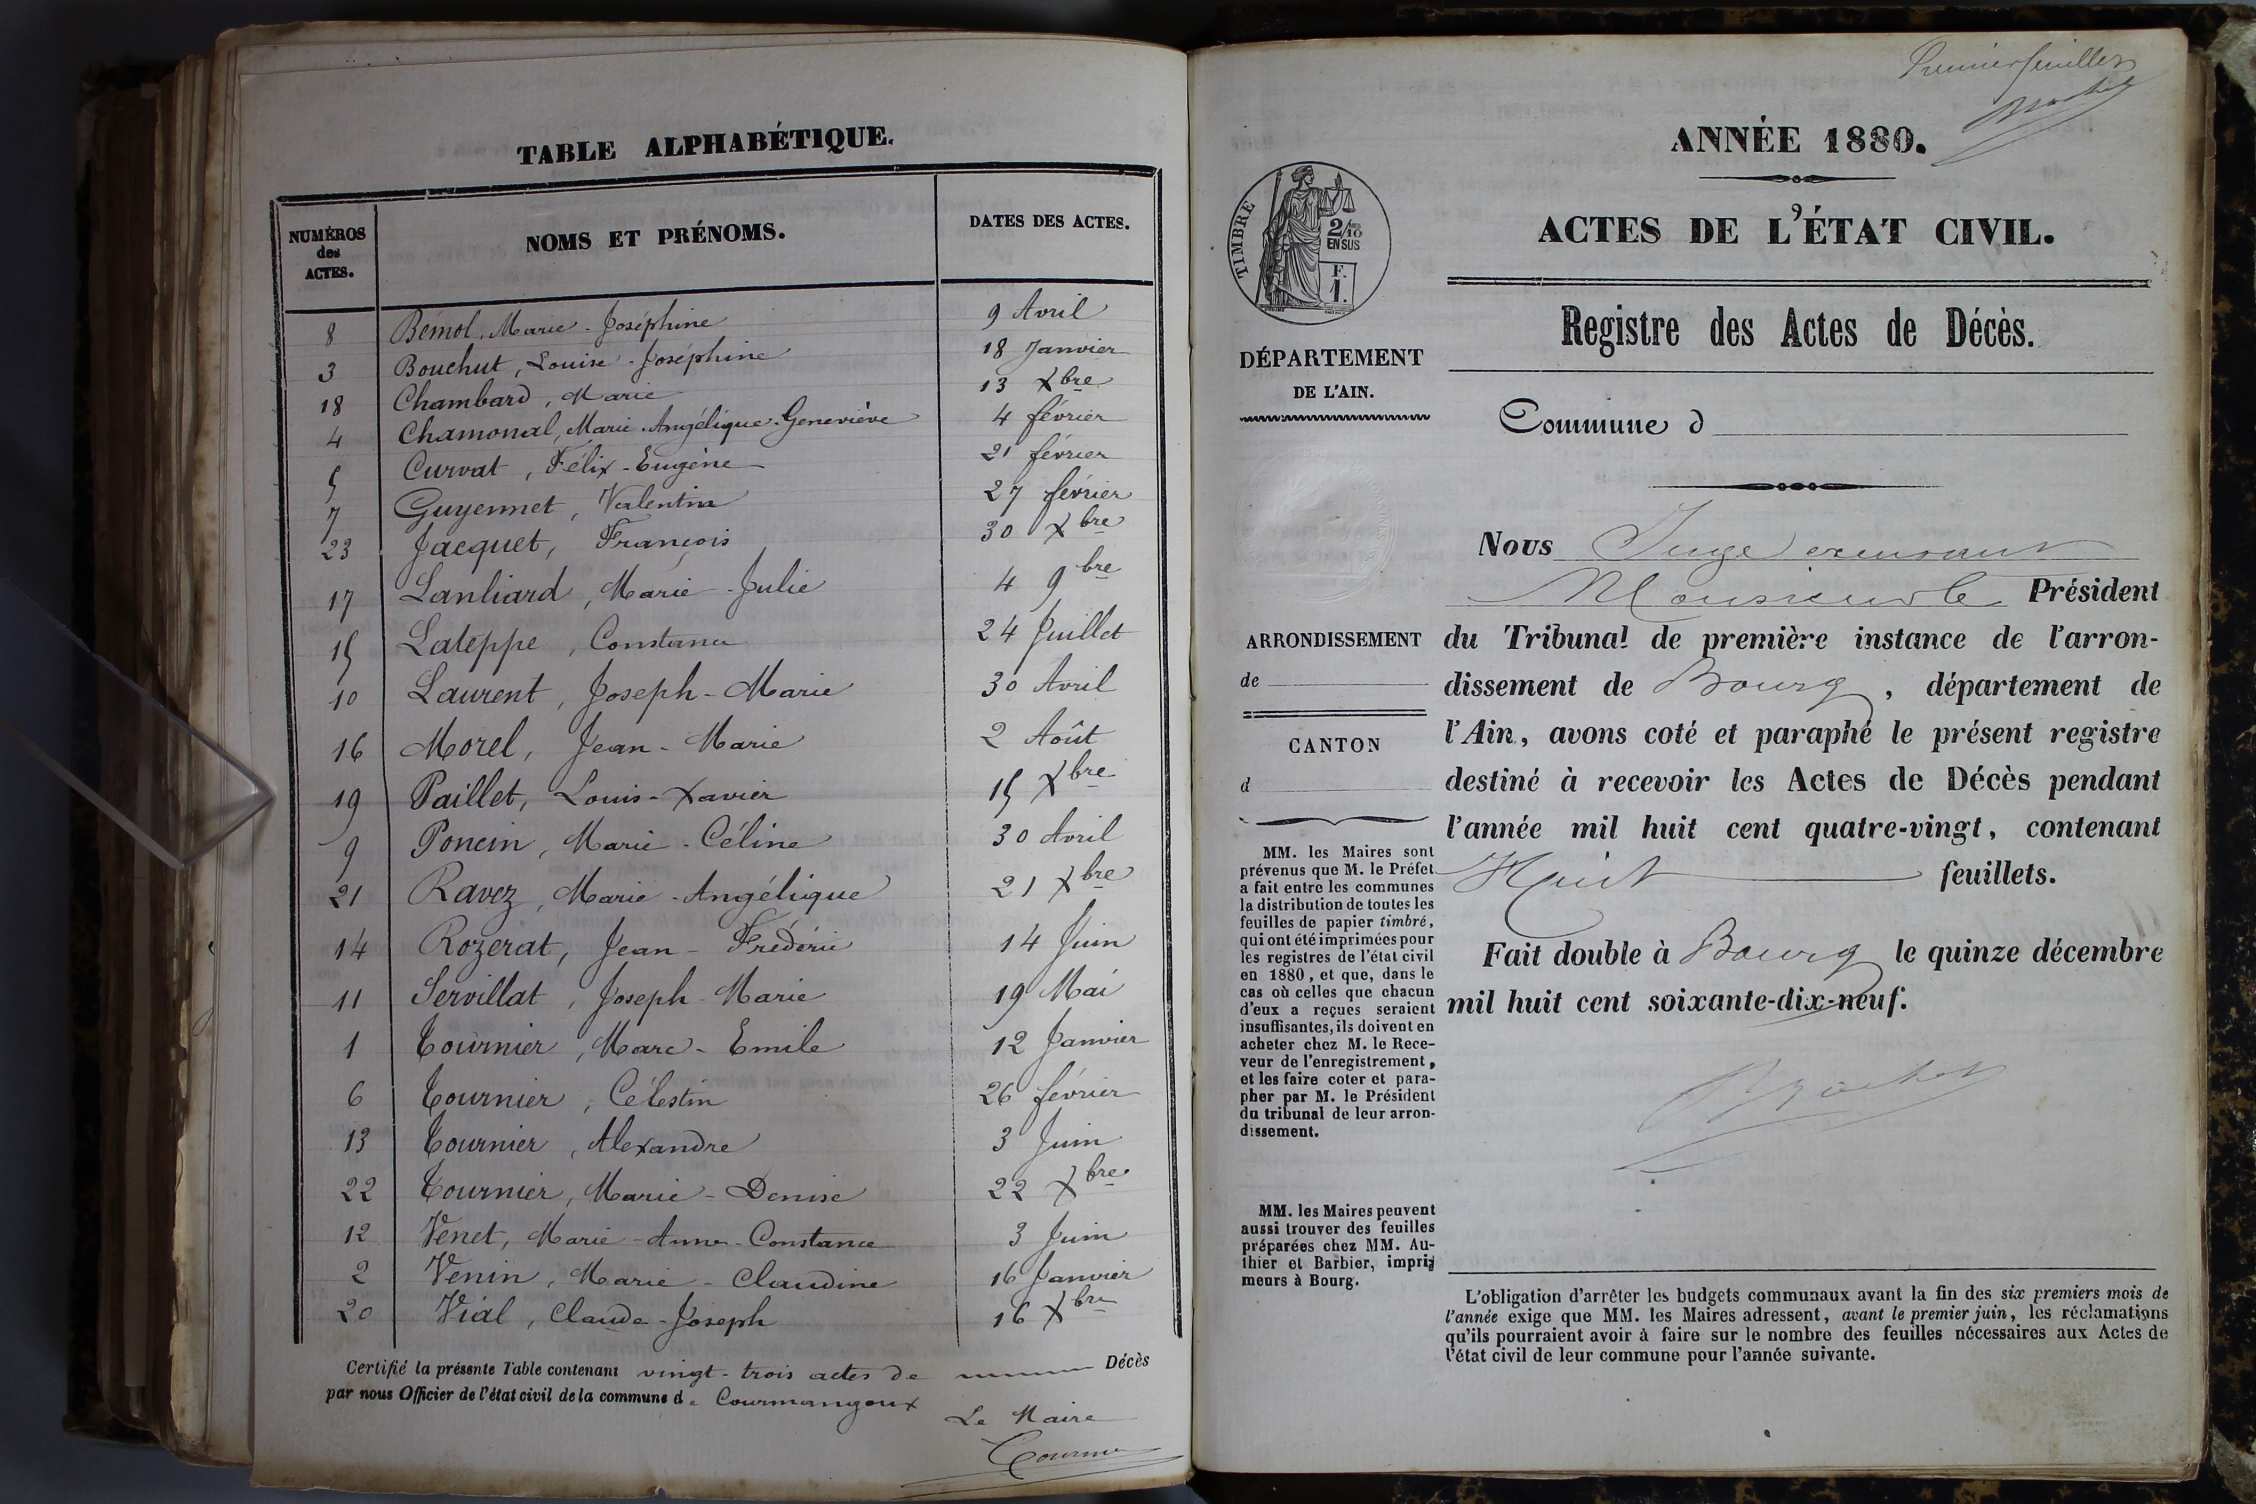 TABLE ALPHABÉTIQUE.
NUMÉROS des ACTES. NOMS ET PRÉNOMS. DATES DES ACTES.
8 Bémol, Marie-Joséphine 9 Avril
3 Bouchut, Louise-Joséphine 18 Janvier
18 Chambard, Marie 13 Xbre
4 Chamonal, Marie-Angélique-Geneviève 4 février
5 Curvat, Félix-Eugène 21 février
7 Guyennet, Valentin 27 février
23 Jacquet, François 30 Xbre
17 Lanliard, Marie-Julie 4 9bre
15 Lateppe, Constance 24 Juillet
10 Laurent, Joseph-Marie 30 Avril
16 Morel, Jean-Marie 2 Août
19 Paillet, Louis-Xavier 15 Xbre
9 Poncin, Marie-Céline 30 Avril
21 Ravez, Marie-Angélique 21 Xbre
14 Rozerat, Jean-Frédéric 14 Juin
11 Servillat, Joseph-Marie 19 Mai
1 Tournier, Marc-Emile 12 Janvier
6 Tournier, Célestin 26 février
13 Tournier, Alexandre 3 Juin
22 Tournier, Marie-Denise 22 Xbre
12 Venet, Marie-Anne-Constance 3 Juin
2 Venin, Marie-Claudine 16 Janvier
20 Vial, Claude-Joseph 16 Xbre
Certifié la présente Table contenant vingt-trois actes de Décès
par nous Officier de l'état civil de la commune de Courmangoux
Le Maire
Premier feuillet
ANNÉE 1880.
ACTES DE L'ÉTAT CIVIL.
Registre des Actes de Décès.
Commune d
TIMBRE
2/10 EN SUS
F. 1.
DÉPARTEMENT
DE L'AIN.
ARRONDISSEMENT
de
CANTON
d
MM. les Maires sont
prévenus que M. le Préfet
a fait entre les communes
la distribution de toutes les
feuilles de papier timbré,
qui ont été imprimées pour
les registres de l'état civil
en 1880, et que, dans le
cas où celles que chacun
d'eux a reçues seraient
insuffisantes, ils doivent en
acheter chez M. le Rece-
veur de l'enregistrement,
et les faire coter et para-
pher par M. le Président
du tribunal de leur arron-
dissement.
MM. les Maires peuvent
aussi trouver des feuilles
préparées chez MM. Au-
thier et Barbier, impri-
meurs à Bourg.
Nous Juge excusant
Monsieur le Président
du Tribunal de première instance de l'arron-
dissement de Bourg, département de
l'Ain, avons coté et paraphé le présent registre
destiné à recevoir les Actes de Décès pendant
l'année mil huit cent quatre-vingt, contenant
Huit feuillets.
Fait double à Bourg le quinze décembre
mil huit cent soixante-dix-neuf.
L'obligation d'arrêter les budgets communaux avant la fin des six premiers mois de
l'année exige que MM. les Maires adressent, avant le premier juin, les réclamations
qu'ils pourraient avoir à faire sur le nombre des feuilles nécessaires aux Actes de
l'état civil de leur commune pour l'année suivante.